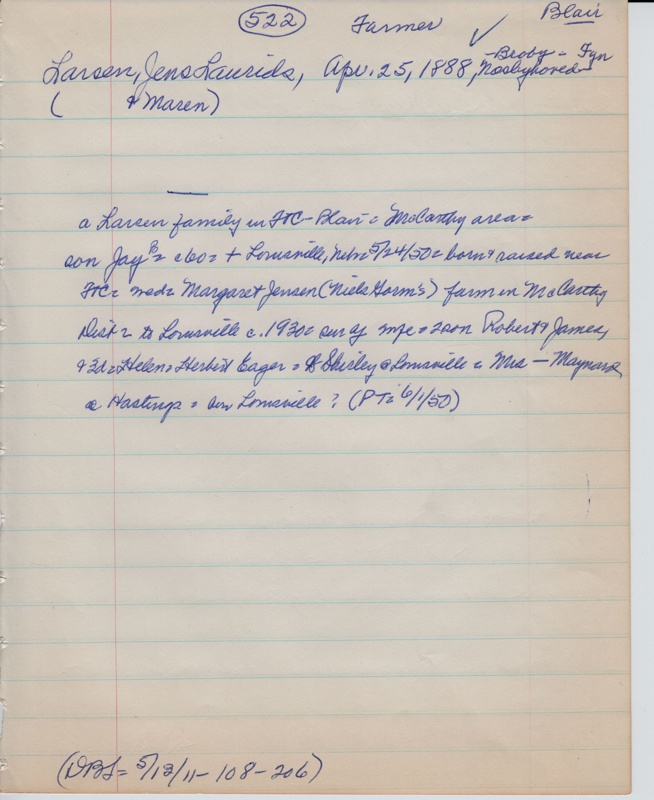 522 Farmer ✓ Blair
Larsen, Jens Laurids, Apr. 25, 1888, -Broby - Fyn
( & Maren) Nosbyhoved-
a Larsen family in FtC - Blair = McCarthy area =
son Jay B = c60 = + Louisville, Nebr = 5/24/50 = born & raised near
FtC = med = Margaret Jensen (Niels Gorm's) farm in McCarthy
Dist = to Louisville c. 1930 = sur of wife = 2 son Robert & James,
& 3d = Helen = Herbert Eager = Shirley @ Louisville = Mrs — Maynard
@ Hastings = bur Louisville ? (PT = 6/1/50)
(DBS = 5/13/11 - 108 - 206)